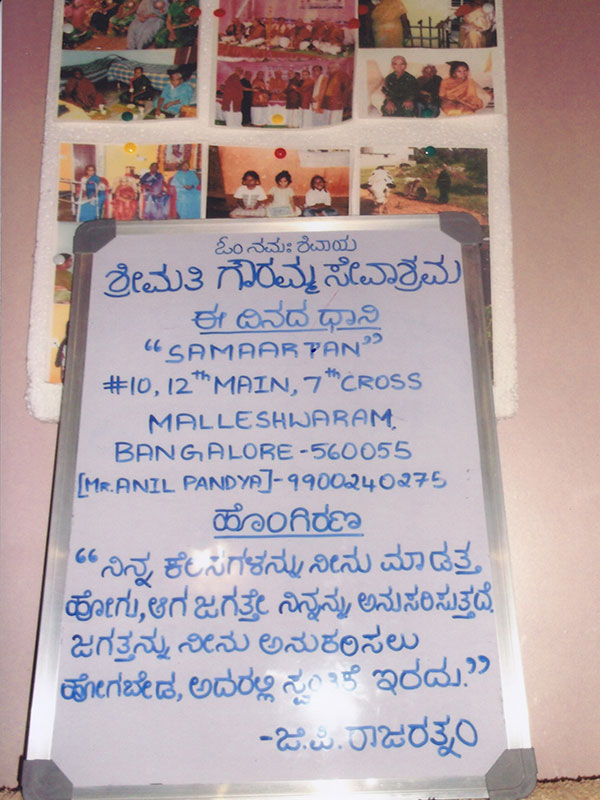 ಓಂ ನಮಃ ಶಿವಾಯ
ಶ್ರೀಮತಿ ಗೌರಮ್ಮ ಸೇವಾಶ್ರಮ
ಈ ದಿನದ ಧಾನಿ
“SAMAARPAN”
#10, 12th MAIN, 7th CROSS
MALLESHWARAM,
BANGALORE-560055
[MR. ANIL PANDYA]-9900240275
ಹೊಂಗಿರಣ
“ನಿನ್ನ ಕೆಲಸಗಳನ್ನು ನೀನು ಮಾಡತ್ತ
ಹೋಗು, ಆಗ ಜಗತ್ತೇ ನಿನ್ನನ್ನು ಅನುಸರಿಸುತ್ತದೆ.
ಜಗತ್ತನ್ನು ನೀನು ಅನುಕರಿಸಲು
ಹೋಗಬೇಡ, ಅದರಲ್ಲಿ ಸ್ವಂತಿಕೆ ಇರದು.”
-ಜಿ.ಪಿ. ರಾಜರತ್ನಂ